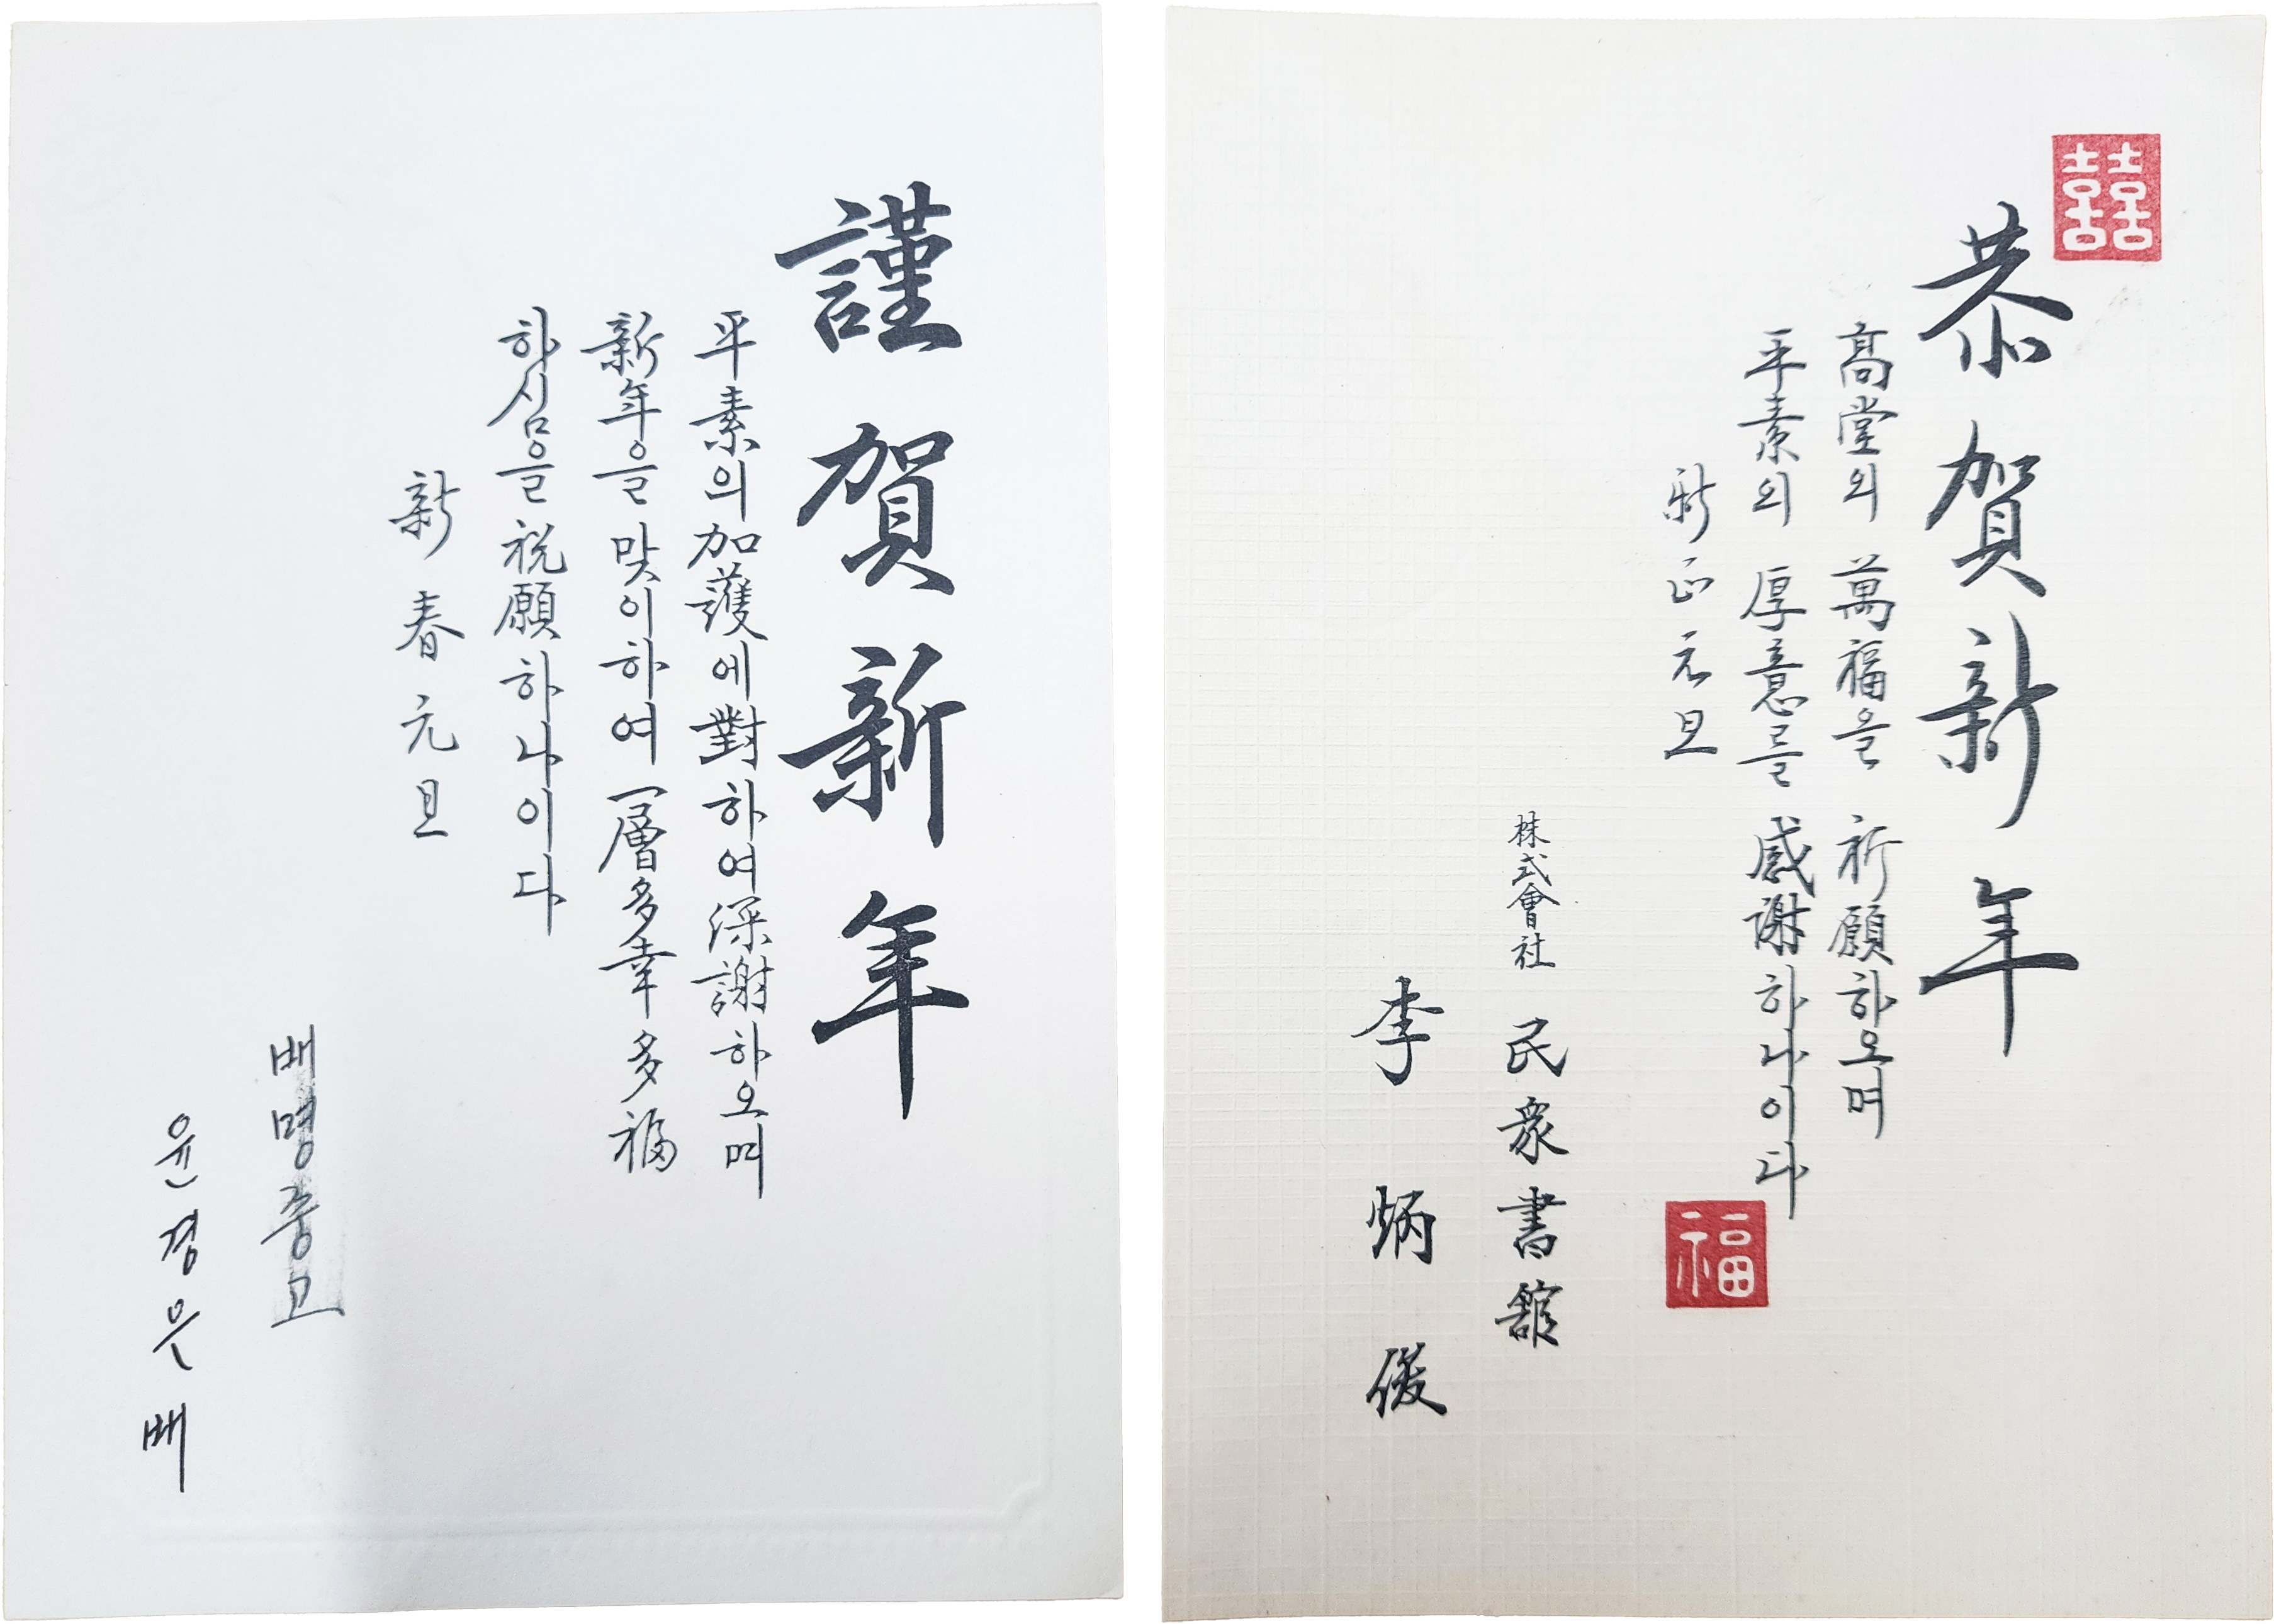 謹賀新年
平素의加護에對하여深謝하오며
新年을맞이하여一層多幸多福
하심을祝願하나이다
新春元旦
배명중고
윤경은배
囍
恭賀新年
高堂의 萬福을 祈願하오며
平素의 厚意를 感謝하나이다
新正元旦
福
株式會社 民衆書館
李炳俊